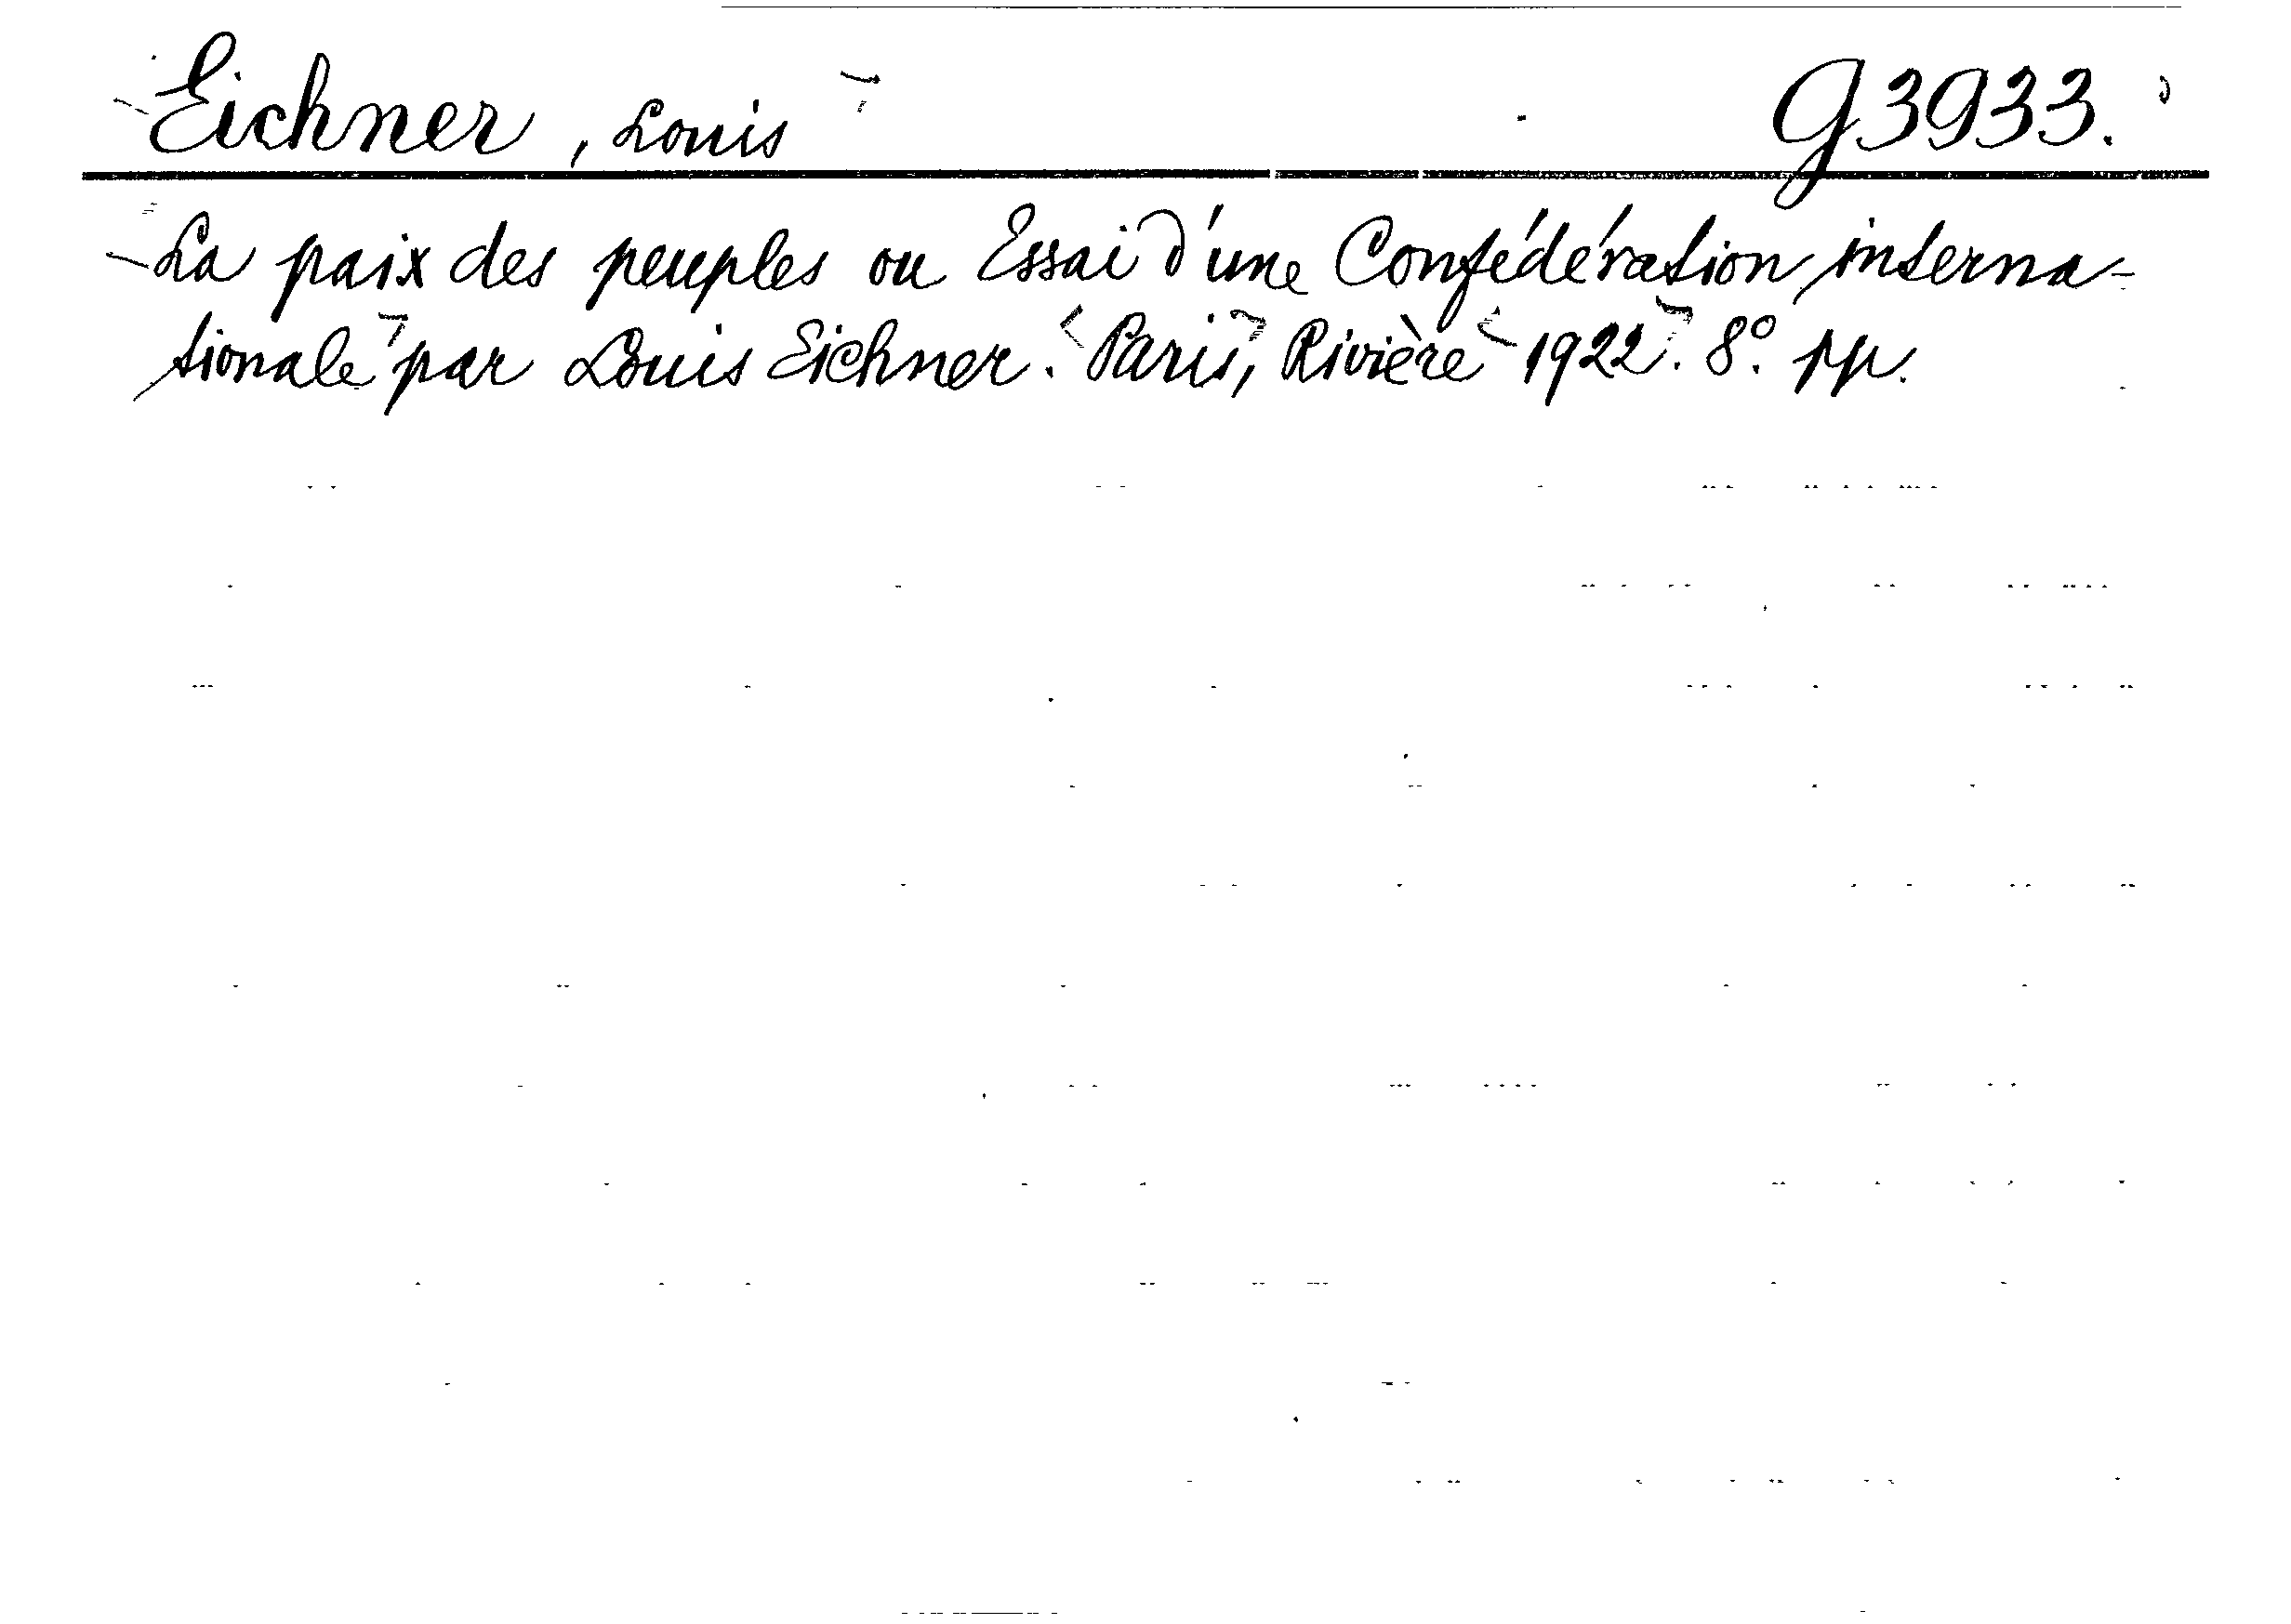 Eichner, Louis G3933.
La paix des peuples ou Essai d'une Confédération interna-
tionale par Louis Eichner. Paris, Rivière 1922. 8° pp.